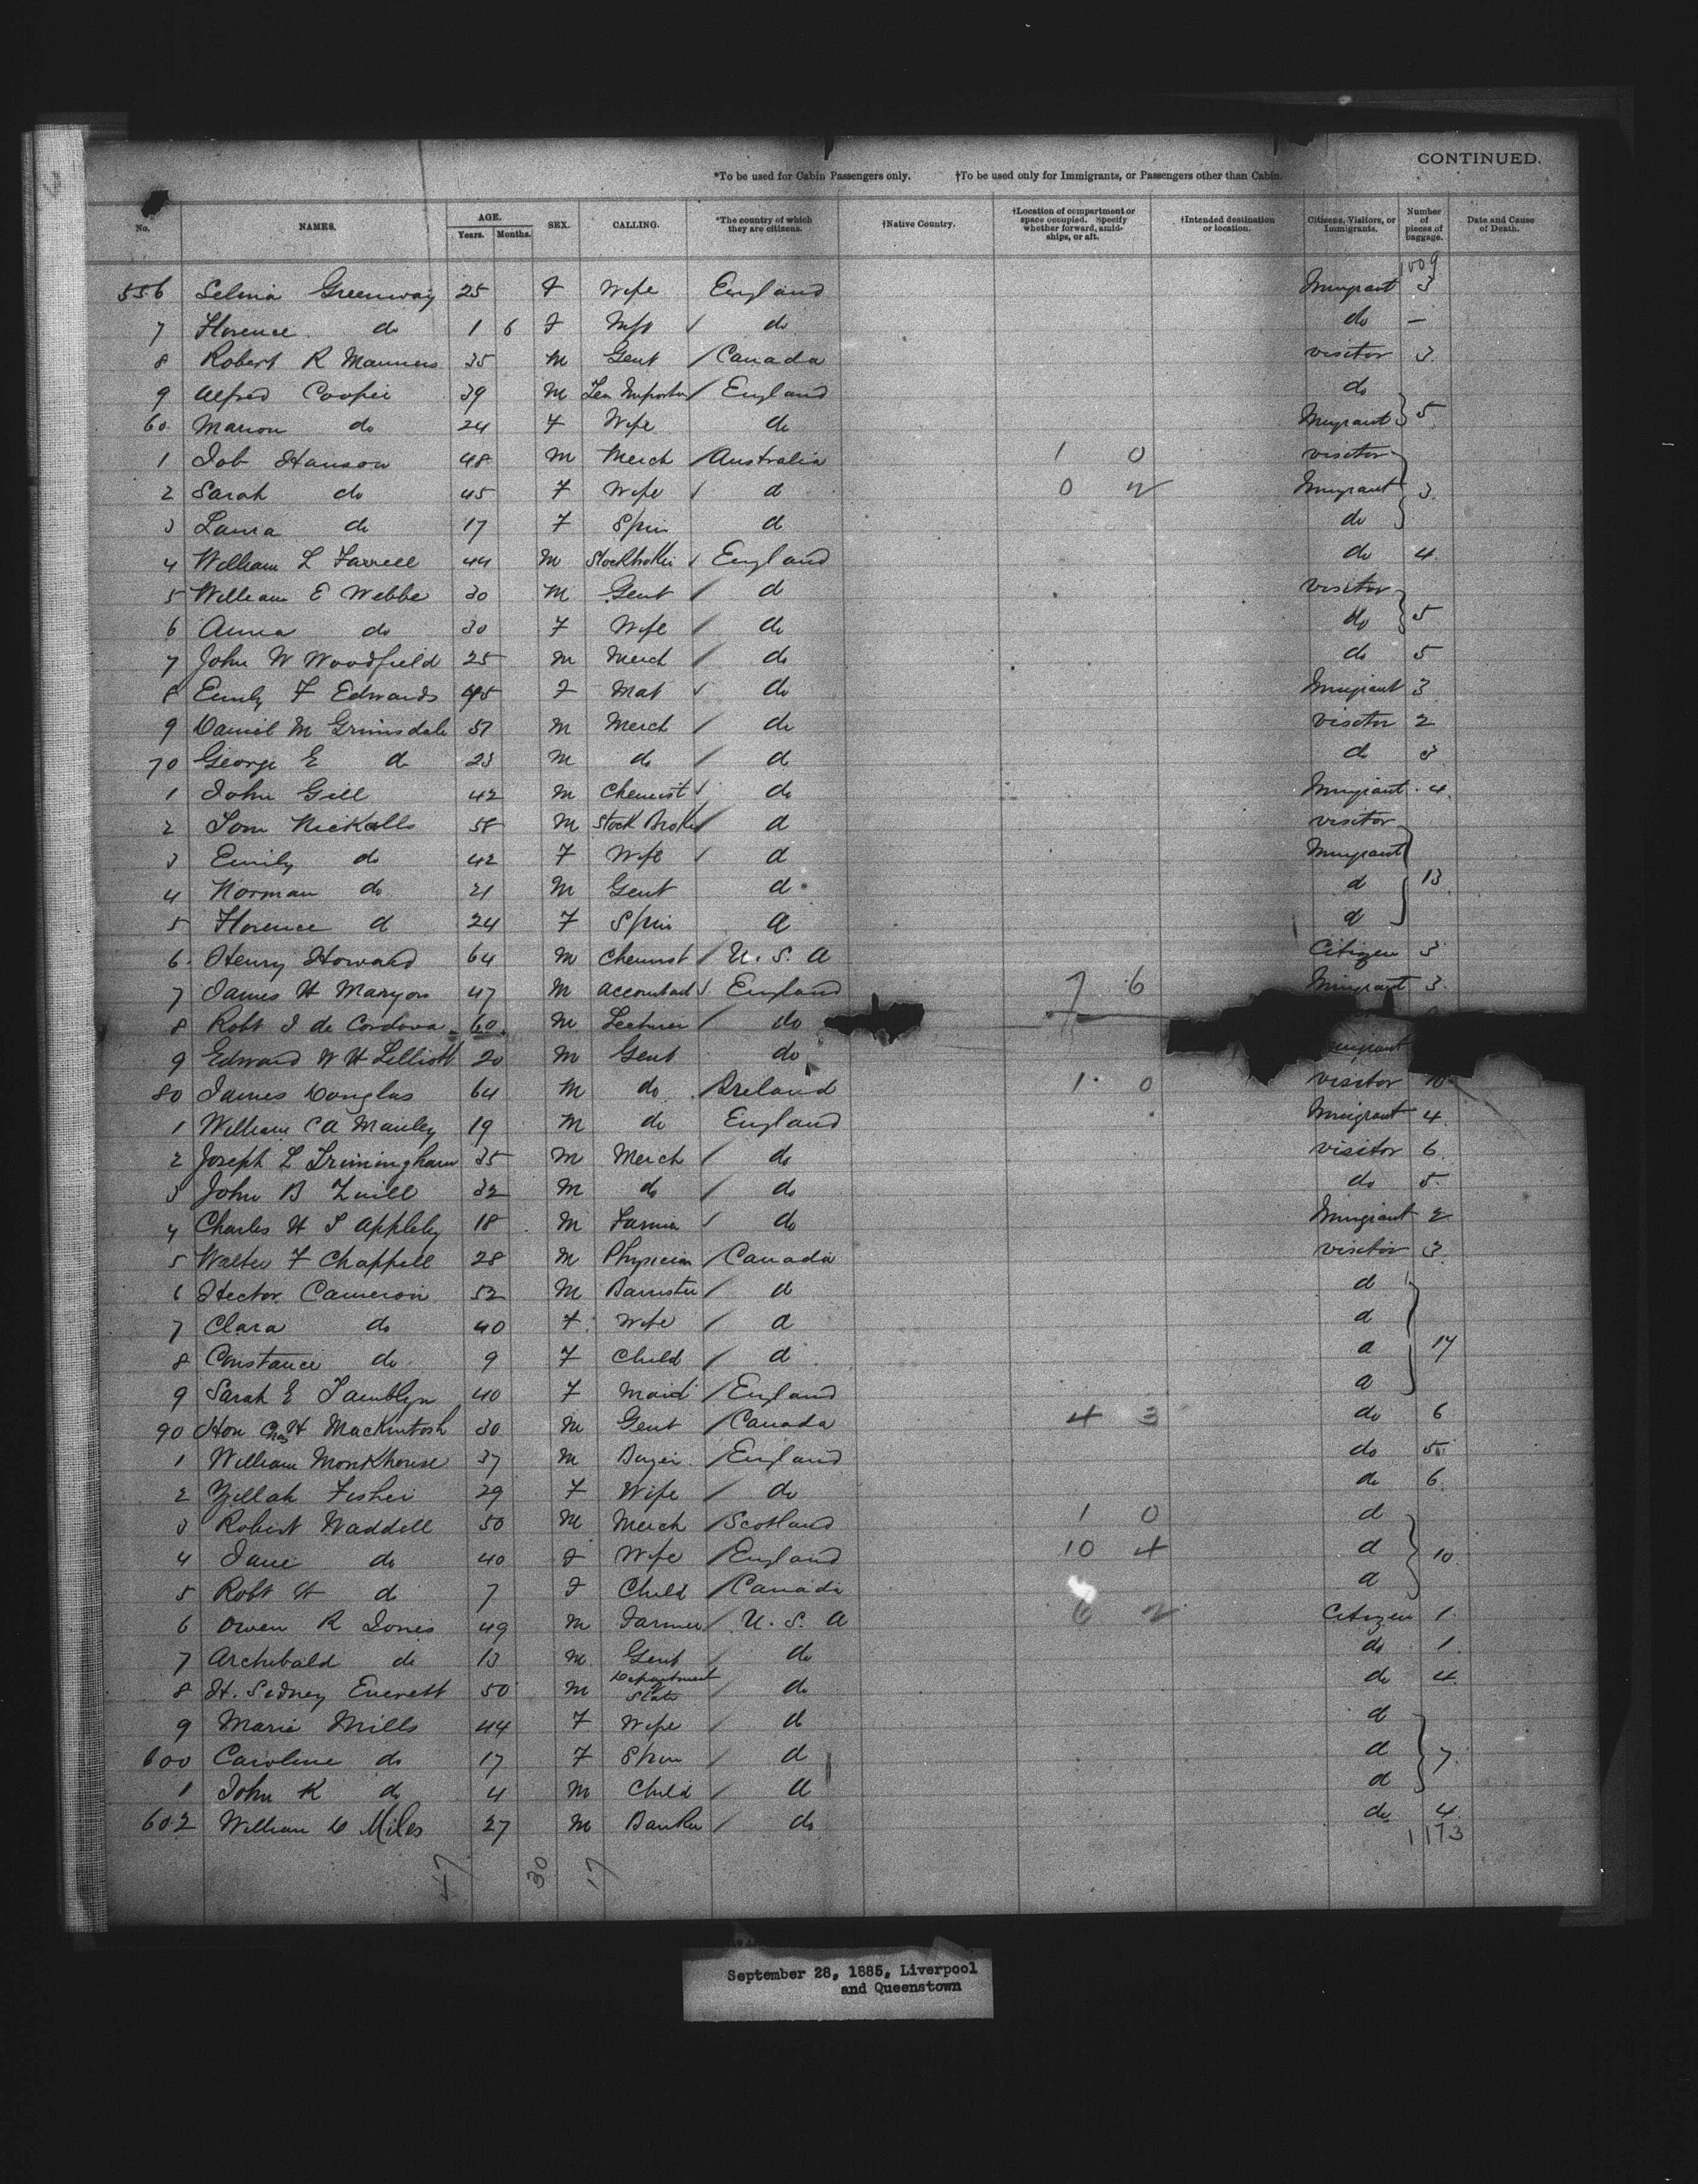 CONTINUED.
*To be used for Cabin Passengers only. †To be used only for Immigrants, or Passengers other than Cabin.
No. NAMES. AGE. Years. Months. SEX. CALLING. *The country of which they are citizens. †Native Country. †Location of compartment or space occupied. Specify whether forward, amidships, or aft. †Intended destination or location. Citizens, Visitors, or Immigrants. Number of pieces of baggage. Date and Cause of Death.
1009
556 Selina Greenway 25 F Wife England Imigrant 3
7 Florence do 1 6 F Inft do do —
8 Robert R Manners 35 M Gent Canada visitor 3
9 Alfred Cooper 39 M Tea Importer England do
60 Marion do 24 F Wife do Imigrant 5
1 Job Hanson 48 M Merch Australia 1 0 visitor
2 Sarah do 45 F Wife d 0 2 Imigrant 3
3 Laura do 17 F Spin d do
4 William L Farrell 44 M Stockbroker England do 4
5 William E Webbe 30 M Gent d visitor
6 Anna do 30 F Wife do do 5
7 John W Woodfield 25 M Merch do do 5
8 Emily F Edwards 45 F Mat do Imigrant 3
9 Daniel M Grimsdale 57 M Merch do visitor 2
70 George E do 23 M do d d 3
1 John Gill 42 M Chemist do Imigrant 4
2 Tom Nickalls 58 M Stock Broker d visitor
3 Emily do 42 F Wife d Imigrant
4 Norman do 21 M Gent d d 13
5 Florence d 24 F Spin d d
6 Henry Howard 64 M Chemist U. S. A Citizen 3
7 James H Maryon 47 M Accountant England 7 6 Imigrant 3
8 Robt J de Cordova 60 M Lecturer do
9 Edward W H Lelliott 20 M Gent do
80 James Douglas 64 M do Ireland 1 0 visitor
1 William C A Manley 19 M do England Imigrant 4
2 Joseph L Trimingham 35 M Merch do visitor 6
3 John B Zuill 32 M do do do 5
4 Charles H S Appleby 18 M Farmer do Imigrant 2
5 Walter F Chappell 28 M Physician Canada visitor 3
6 Hector Cameron 52 M Barrister d d
7 Clara do 40 F Wife d d
8 Constance do 9 F Child d d 17
9 Sarah E Tamblyn 40 F Maid England d
90 Hon Chas H Mackintosh 30 M Gent Canada 4 3 do 6
1 William Monkhouse 37 M Buyer England do 5
2 Zillah Fisher 29 F Wife do do 6
3 Robert Waddell 50 M Merch Scotland 1 0 d
4 Jane do 40 F Wife England 10 4 d 10
5 Robt H do 7 F Child Canada d
6 Owen R Jones 49 M Farmer U. S. A 6 2 Citizen 1
7 Archibald do 13 M Gent do do 1
8 H. Sidney Everett 50 M Department State do do 4
9 Marie Mills 44 F Wife d d
600 Caroline do 17 F Spin d d 7
1 John K do 4 M Child d d
602 William Miles 27 M Banker do do 4
1173
47 30 17
September 28, 1885, Liverpool
and Queenstown